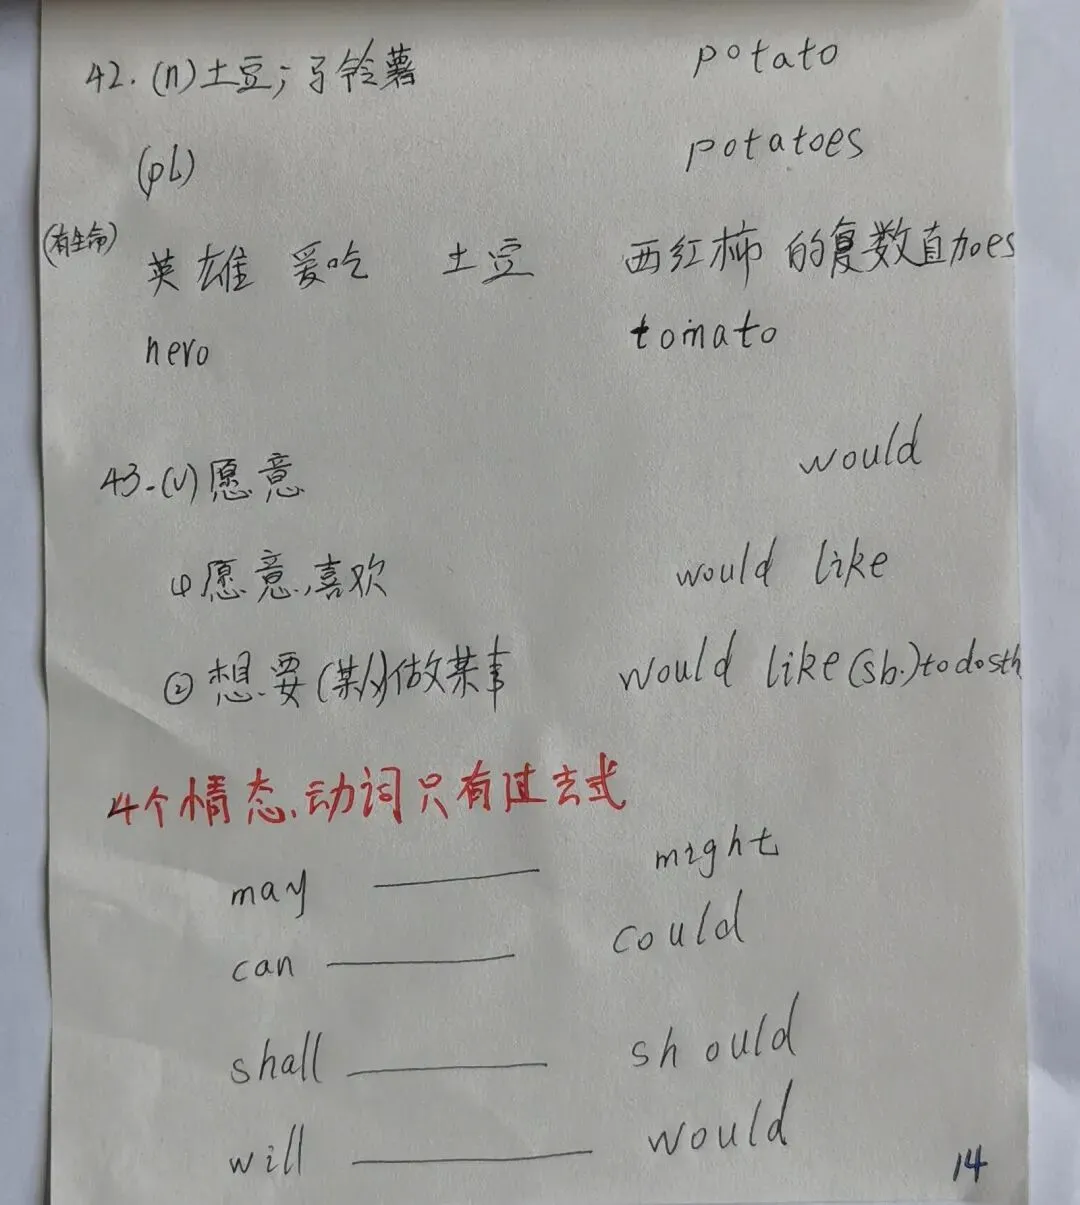 42. (n)土豆；马铃薯 potato
(pl) potatoes
(有生命) 英雄 爱吃 土豆 西红柿 的复数直加es
hero tomato
43. (v) 愿意 would
① 愿意,喜欢 would like
② 想要(某人)做某事 would like (sb.) to do sth
4个情态动词只有过去式
may ______ might
can ______ could
shall ______ should
will ______ would
14